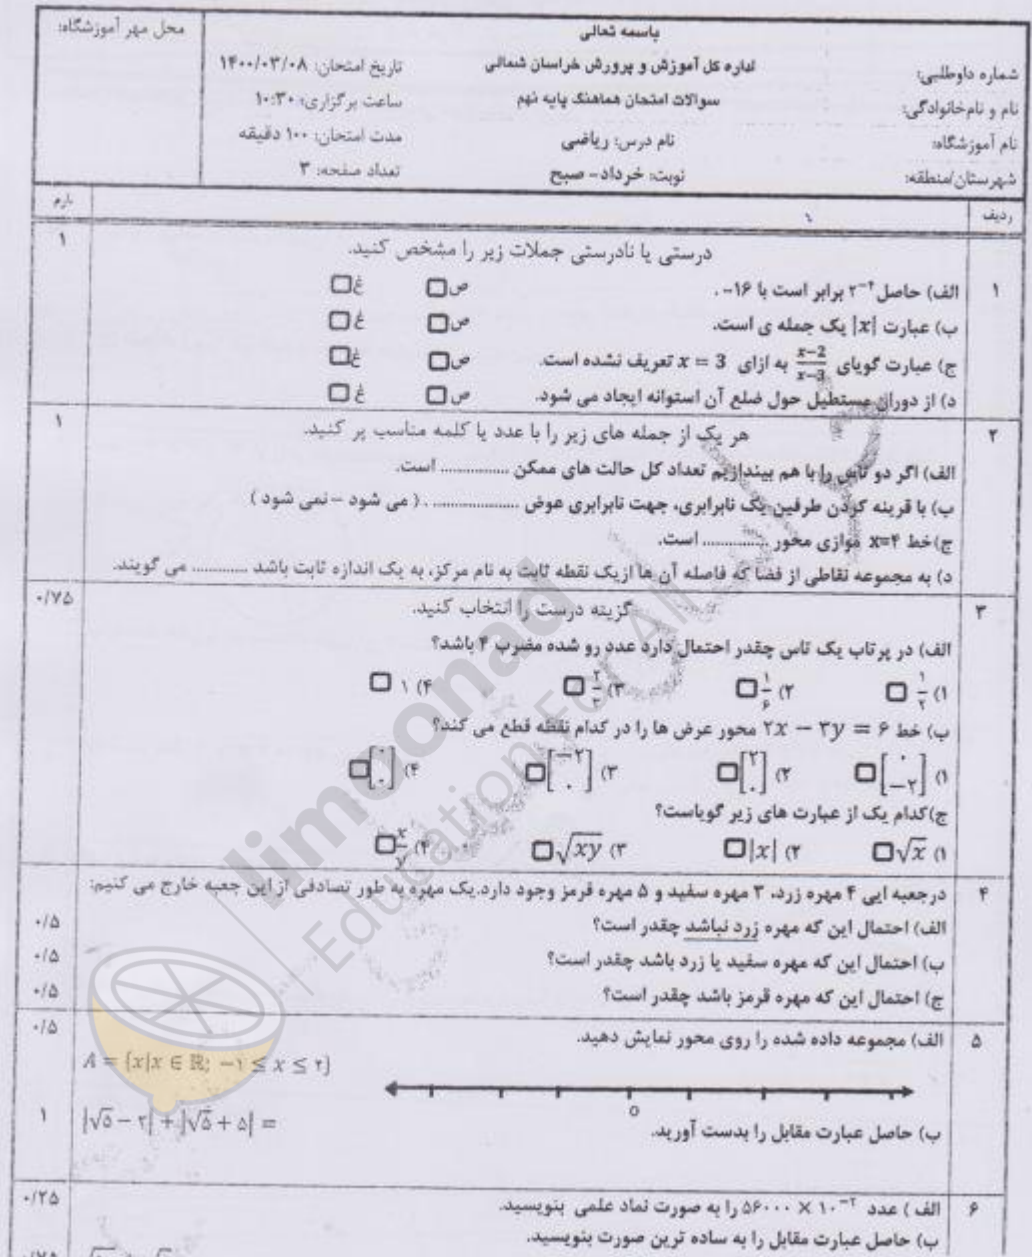 باسمه تعالی
محل مهر آموزشگاه:
اداره کل آموزش و پرورش خراسان شمالی
تاریخ امتحان: ۱۴۰۰/۰۳/۰۸
شماره داوطلبی:
سوالات امتحان هماهنگ پایه نهم
ساعت برگزاری: ۱۰:۳۰
نام و نام‌خانوادگی:
نام درس: ریاضی
مدت امتحان: ۱۰۰ دقیقه
نام آموزشگاه:
نوبت: خرداد - صبح
تعداد صفحه: ۳
شهرستان/منطقه:
ردیف
بارم
درستی یا نادرستی جملات زیر را مشخص کنید.
۱
۱ الف) حاصل ۲⁻⁴ برابر است با ۱۶- . ص غ
ب) عبارت |x| یک جمله ی است. ص غ
ج) عبارت گویای (x−2)/(x−3) به ازای x = 3 تعریف نشده است. ص غ
د) از دوران مستطیل حول ضلع آن استوانه ایجاد می شود. ص غ
۲ هر یک از جمله های زیر را با عدد یا کلمه مناسب پر کنید. ۱
الف) اگر دو تاس را با هم بیندازیم تعداد کل حالت های ممکن ............... است.
ب) با قرینه کردن طرفین یک نابرابری، جهت نابرابری عوض ................... . ( می شود – نمی شود )
ج)خط x=۴ موازی محور ............... است.
د) به مجموعه نقاطی از فضا که فاصله آن ها ازیک نقطه ثابت به نام مرکز، به یک اندازه ثابت باشد ............ می گویند.
۳ گزینه درست را انتخاب کنید. ۰/۷۵
الف) در پرتاب یک تاس چقدر احتمال دارد عدد رو شده مضرب ۴ باشد؟
۱) ۱/۲ ۲) ۱/۶ ۳) ۲/۳ ۴) ۱
ب) خط ۲x − ۳y = ۶ محور عرض ها را در کدام نقطه قطع می کند؟
۱) [۰ −۲] ۲) [۲ ۰] ۳) [−۲ ۰] ۴) [۰ ۰]
ج)کدام یک از عبارت های زیر گویاست؟
۱) √x ۲) |x| ۳) √xy ۴) x/y
۴ درجعبه ایی ۴ مهره زرد، ۳ مهره سفید و ۵ مهره قرمز وجود دارد.یک مهره به طور تصادفی از این جعبه خارج می کنیم:
الف) احتمال این که مهره زرد نباشد چقدر است؟ ۰/۵
ب) احتمال این که مهره سفید یا زرد باشد چقدر است؟ ۰/۵
ج) احتمال این که مهره قرمز باشد چقدر است؟ ۰/۵
۵ الف) مجموعه داده شده را روی محور نمایش دهید. ۰/۵
A = {x|x ∈ ℝ; −۱ ≤ x ≤ ۲}
0
ب) حاصل عبارت مقابل را بدست آورید. |√۵ − ۲| + |√۵ + ۵| = ۱
۶ الف ) عدد ۵۶۰۰۰ × ۱۰⁻² را به صورت نماد علمی بنویسید. ۰/۲۵
ب) حاصل عبارت مقابل را به ساده ترین صورت بنویسید.
limoonad
Education For All